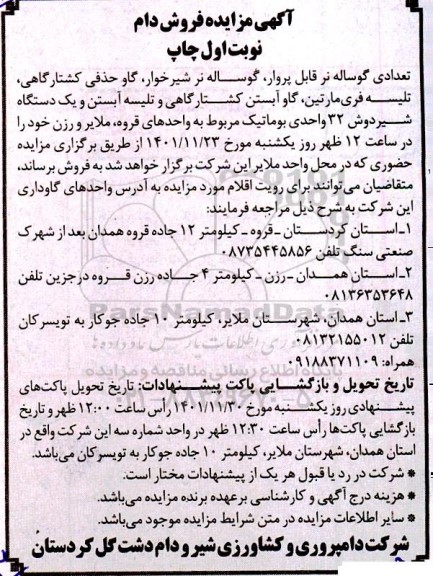 آگهی مزایده فروش دام
نوبت اول چاپ
تعدادی گوساله نر قابل پروار، گوساله نر شیرخوار، گاو حذفی کشتارگاهی،
تلیسه فری‌مارتین، گاو آبستن کشتارگاهی و تلیسه آبستن و یک دستگاه
شیردوش ۳۲ واحدی بوماتیک مربوط به واحدهای قروه، ملایر و رزن خود را
در ساعت ۱۲ ظهر روز یکشنبه مورخ ۱۴۰۱/۱۱/۲۳ از طریق برگزاری مزایده
حضوری که در محل واحد ملایر این شرکت برگزار خواهد شد به فروش برساند،
متقاضیان می‌توانند برای رویت اقلام مورد مزایده به آدرس واحدهای گاوداری
این شرکت به شرح ذیل مراجعه فرمایند:
۱ـ استان کردستان ـ قروه ـ کیلومتر ۱۲ جاده قروه همدان بعد از شهرک
صنعتی سنگ تلفن ۰۸۷۳۵۴۴۵۸۵۶
۲ـ استان همدان ـ رزن ـ کیلومتر ۴ جاده رزن قروه درجزین تلفن
۰۸۱۳۶۳۵۳۶۴۸
۳ـ استان همدان، شهرستان ملایر، کیلومتر ۱۰ جاده جوکار به تویسرکان
تلفن ۰۸۱۳۲۱۵۵۰۱۲
همراه: ۰۹۱۸۸۳۷۱۱۰۹
تاریخ تحویل و بازگشایی پاکت پیشنهادات: تاریخ تحویل پاکت‌های
پیشنهادی روز یکشنبه مورخ ۱۴۰۱/۱۱/۳۰ رأس ساعت ۱۲:۰۰ ظهر و تاریخ
بازگشایی پاکت‌ها رأس ساعت ۱۲:۳۰ ظهر در واحد شماره سه این شرکت واقع در
استان همدان، شهرستان ملایر، کیلومتر ۱۰ جاده جوکار به تویسرکان می‌باشد.
* شرکت در رد یا قبول هر یک از پیشنهادات مختار است.
* هزینه درج آگهی و کارشناسی برعهده برنده مزایده می‌باشد.
* سایر اطلاعات مزایده در متن شرایط مزایده موجود می‌باشد.
شرکت دامپروری و کشاورزی شیر و دام دشت گل کردستان